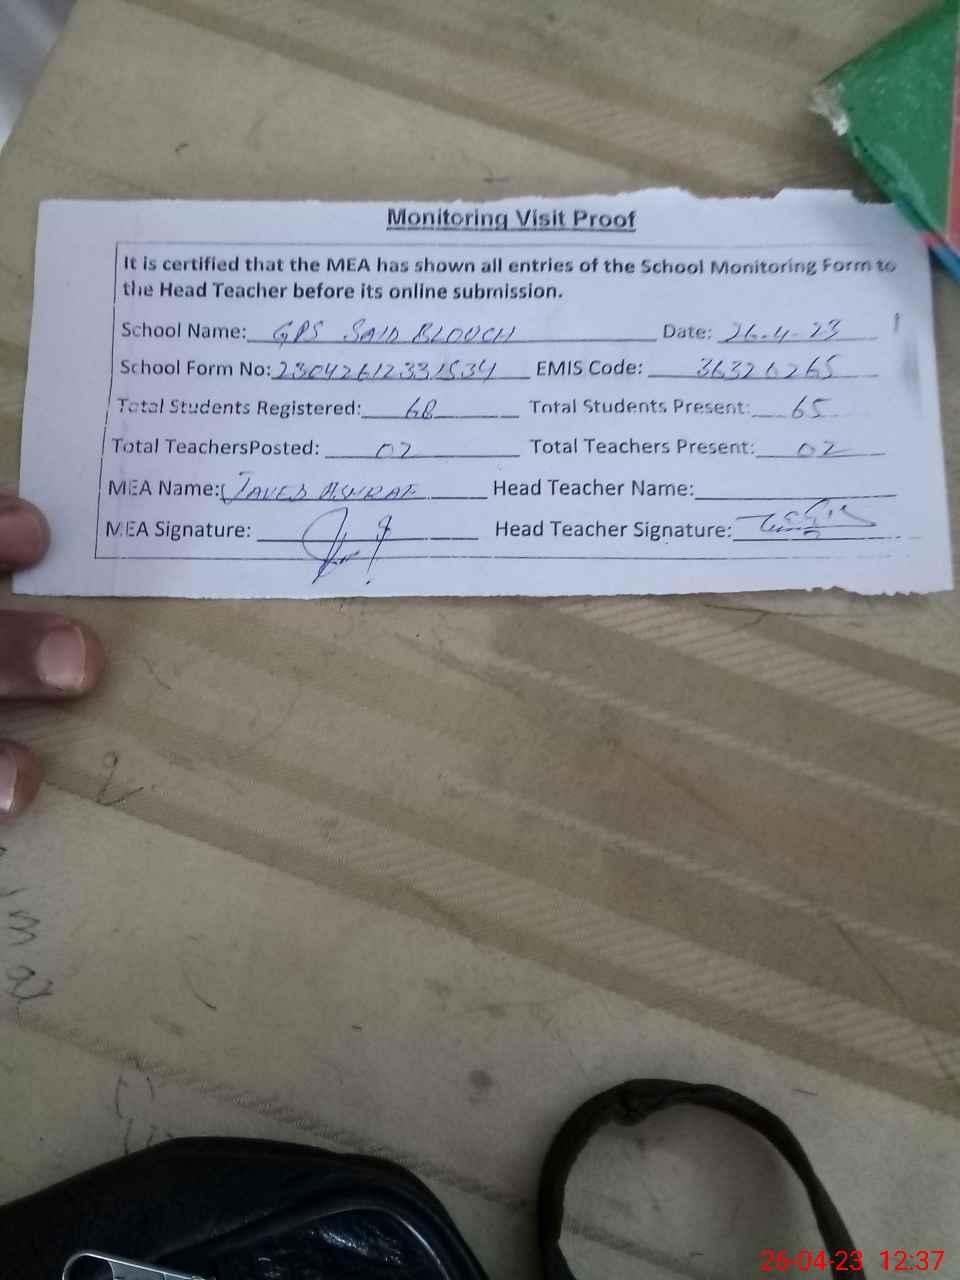 Monitoring Visit Proof
It is certified that the MEA has shown all entries of the School Monitoring Form to
the Head Teacher before its online submission.
School Name: GPS SAID BLOUCH Date: 26-4-23
School Form No: 23042612331534 EMIS Code: 36320265
Total Students Registered: 68 Total Students Present: 65
Total TeachersPosted: 02 Total Teachers Present: 02
MEA Name: JAVED ASHRAF Head Teacher Name:
MEA Signature: Head Teacher Signature:
26-04-23 12:37